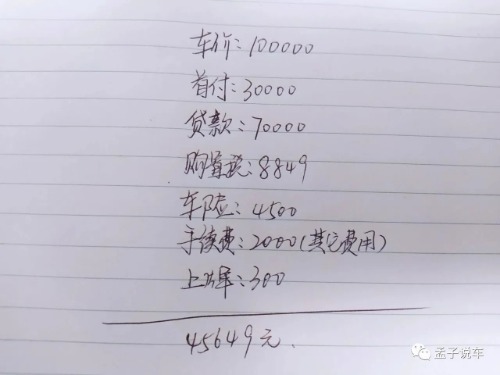 车价:100000
首付:30000
贷款:70000
购置税:8849
车险:4500
手续费:2000(其它费用)
上牌:300
45649元.
孟子说车